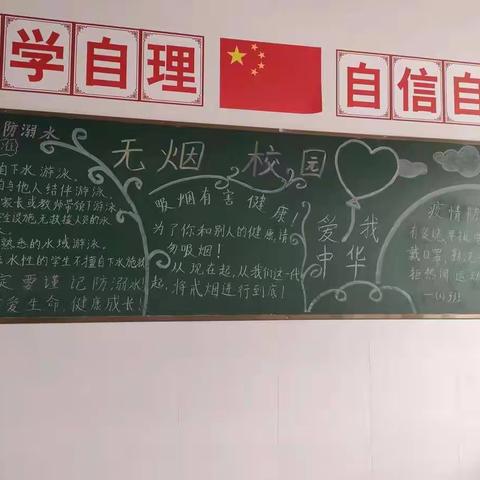 学自理
自信自
防溺水
无烟 校园
自下水游泳。
与他人结伴游泳。
家长或教师带领下游泳
全设施、无救援人员的水
熟悉的水域游泳。
水性的学生不擅自下水施救
定要谨记防溺水!
爱生命,健康成长!
吸烟有害健康!
为了你和别人的健康,请
勿吸烟!
从现在起,从我们这一代
起,将戒烟进行到底!
爱我
中华
疫情防
戴口罩,勤洗